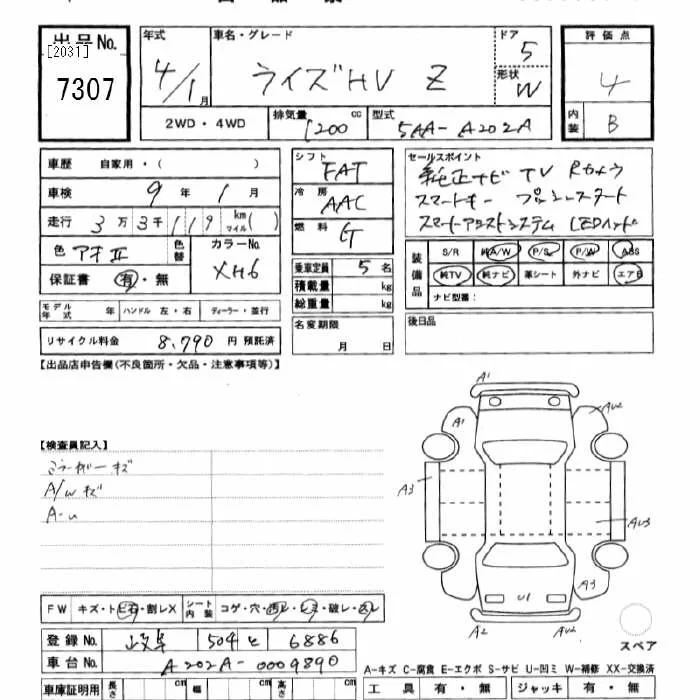 出品No. [2031] 7307
年式 4/1月
車名・グレード ライズHV Z
ドア 5 形状 W
2WD・4WD
排気量 1200 cc
型式 5AA-A202A
評価点 4
内装 B
車歴 自家用・( )
車検 9年1月
走行 3万3千119 km マイル( )
色 アオII 色替 カラーNo. XH6
保証書 有・無
モデル年式 年 ハンドル 左・右 ディーラー・並行
リサイクル料金 8,790 円 預託済
シフト FAT
冷房 AAC
燃料 G
乗車定員 5名
積載量 kg
総重量 kg
名変期限 月 日
セールスポイント
純正ナビ TV Rカメラ
スマートキー プッシュスタート
スマートアシストシステム LEDヘッド
装備品 S/R 純A/W P/S P/W ABS
純TV 純ナビ 革シート 外ナビ エアB
ナビ型番:
後日品
【出品店申告欄(不良箇所・欠品・注意事項等)】
【検査員記入】
ミラーカバーキズ
A/Wキズ
A-U
A1
A1
AU2
A3
AU3
A3
U1
A2
AU2
スペア
FW キズ・トビ石・割レX シート内装 コゲ・穴・汚レ・シミ・破レ・スレ
登録No. 岐阜 504 と 6886
車台No. A202A-0009890
車庫証明用 長さ cm 幅 cm 高さ cm
A-キズ C-腐食 E-エクボ S-サビ U-凹ミ W-補修 XX-交換済
工具 有・無 ジャッキ 有・無